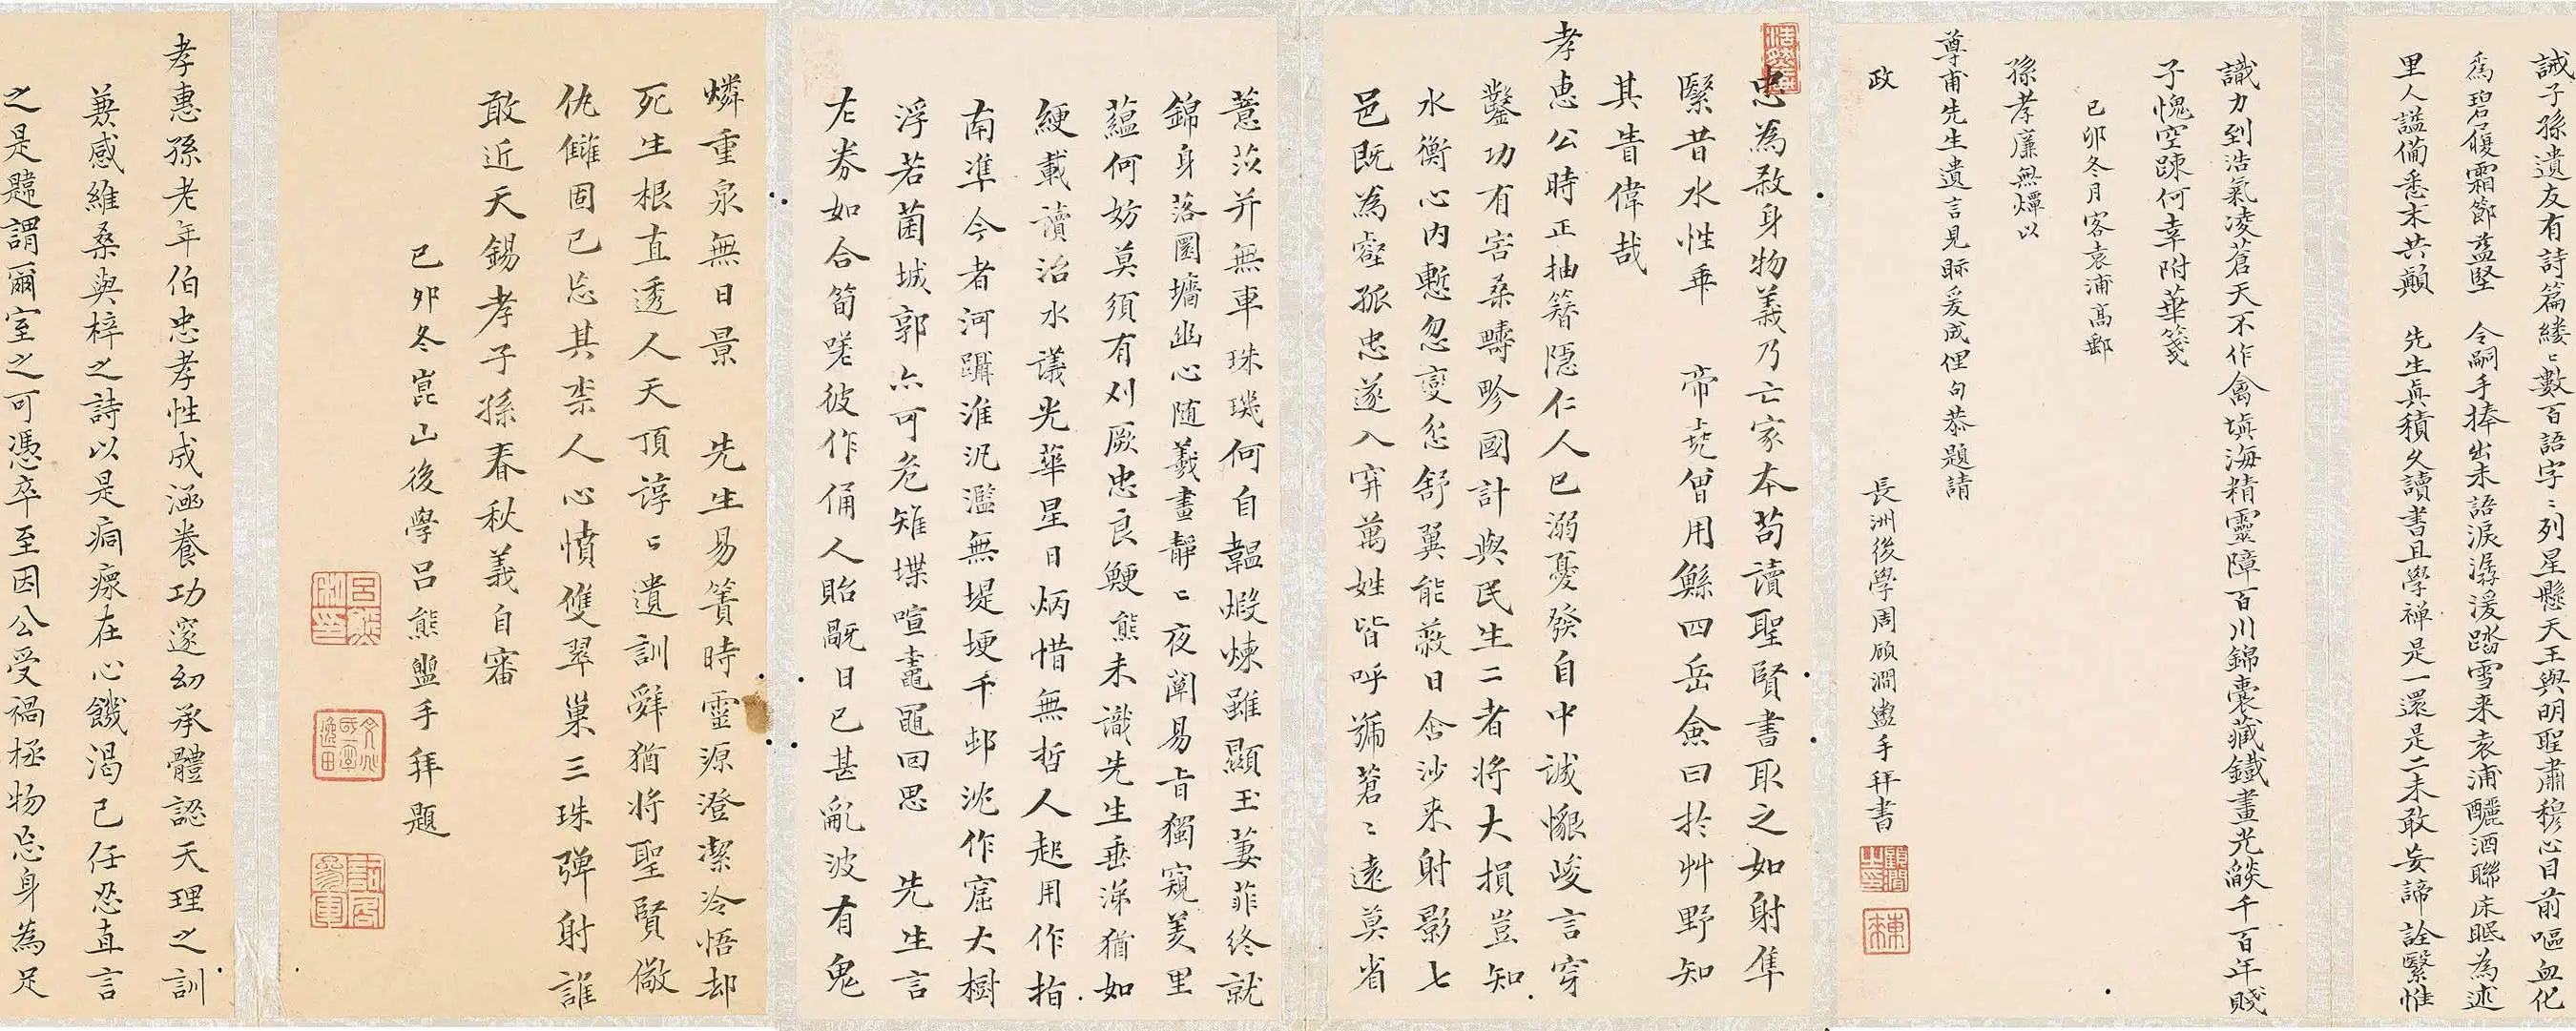 誡子孫遺友有詩篇縷〻數百語字〻列星懸天王與明聖肅穆心目前嘔血化
為碧履霜節益堅　令嗣手捧出未語淚潺湲踏雪来袁浦釃酒聯床眠為述
里人謚備悉末共顛　先生真積久讀書且學禅是一還是二未敢妄諦詮繄惟
識力到浩氣凌蒼天不作禽塡海精靈障百川錦囊藏鐵畫光燄千百年賤
子愧空踈何幸附華箋
己卯冬月客袁浦髙郵
孫孝廉無燀以
尊甫先生遺言見眎爰成俚句恭題請
政
長洲後學周顧澗盥手拜書
忠為救身物義乃亡家本苟讀聖賢書取之如射隼
繄昔水性乖　帝堯曾用鯀四岳僉曰扵艸野知
其眚偉哉
孝惠公時正抽簪隱仁人已溺憂發自中誠懇峻言穿
鑿功有害桑疇畛國計與民生二者将大損豈知
水衡心内慙忽變忿舒翼能蔽日含沙来射影七
邑既為壑孤忠遂入穽萬姓皆呼號蒼〻遠莫省
薏苡并無車珠璣何自韞煅煉雖顯玉萋菲終就
錦身落圜墻幽心随羲畫靜〻夜闌易旨獨窺羑里
蘊何妨莫須有刈厥忠良鯁熊未識先生垂涕猶如
綆載讀治水議光華星日炳惜無哲人起用作指
南凖今者河躡淮汎濫無堤埂千邨洮作窟大樹
浮若菌城郭亦可危雉堞喧鼃黽回思　先生言
左券如合筍嗟彼作俑人貽厭日已甚亂波有鬼
燐重泉無日景　先生易簀時靈源澄潔冷悟却
死生根直透人天頂諄〻遺訓辭猶将聖賢儆
仇讎固已忘其柰人心憤雙翠巢三珠弹射誰
敢近天錫孝子孫春秋義自審
己夘冬崑山後學呂熊盥手拜題
孝惠孫老年伯忠孝性成涵養功邃幼承體認天理之訓
兼感維桑與梓之詩以是痌瘝在心饑渴已任忍直言
之是韙謂爾室之可憑卒至因公受禍極物忘身為足